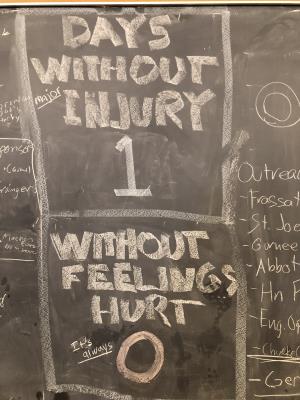 DAYS
WITHOUT
major
INJURY
1
WITHOUT
FEELINGS
HURT
It's
always
0
Outreac
- Frassat
- St. Joe
- Gurnee
- Abbot
- Hn F
- Eng. O
- Ger